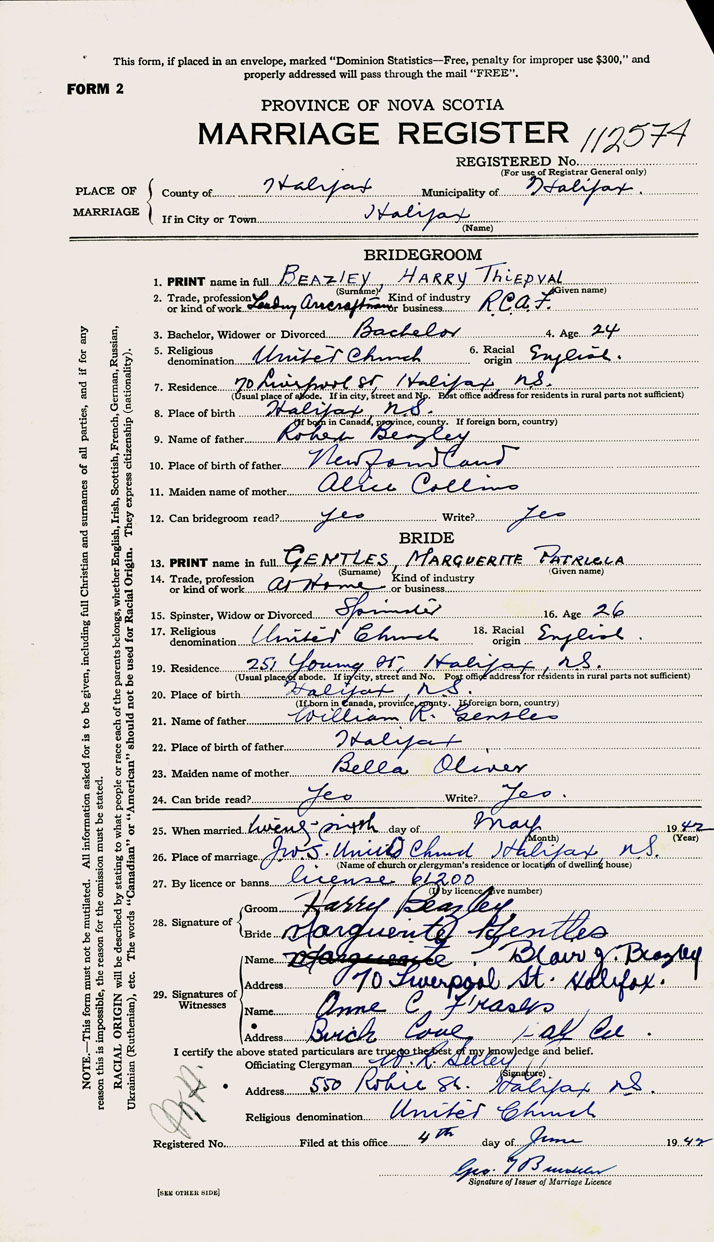 This form, if placed in an envelope, marked "Dominion Statistics—Free, penalty for improper use $300," and
properly addressed will pass through the mail "FREE".
FORM 2
PROVINCE OF NOVA SCOTIA
MARRIAGE REGISTER 112574
REGISTERED No.
(For use of Registrar General only)
PLACE OF MARRIAGE
County of Halifax Municipality of Halifax.
If in City or Town Halifax
(Name)
BRIDEGROOM
1. PRINT name in full BEAZLEY, HARRY THIEPVAL
(Surname) (Given name)
2. Trade, profession or kind of work Leading Aircraftman Kind of industry or business R.C.A.F.
3. Bachelor, Widower or Divorced Bachelor 4. Age 24
5. Religious denomination United Church 6. Racial origin English.
7. Residence 70 Liverpool St, Halifax, N.S.
(Usual place of abode. If in city, street and No. Post office address for residents in rural parts not sufficient)
8. Place of birth Halifax, N.S.
(If born in Canada, province, county. If foreign born, country)
9. Name of father Robert Beazley
10. Place of birth of father Newfoundland
11. Maiden name of mother Alice Collins
12. Can bridegroom read? Yes Write? Yes
BRIDE
13. PRINT name in full GENTLES, MARGUERITE PATRICIA
(Surname) (Given name)
14. Trade, profession or kind of work At Home Kind of industry or business
15. Spinster, Widow or Divorced Spinster 16. Age 26
17. Religious denomination United Church 18. Racial origin English.
19. Residence 251 Young St, Halifax, N.S.
(Usual place of abode. If in city, street and No. Post office address for residents in rural parts not sufficient)
20. Place of birth Halifax, N.S.
(If born in Canada, province, county. If foreign born, country)
21. Name of father William R. Gentles
22. Place of birth of father Halifax
23. Maiden name of mother Bella Oliver
24. Can bride read? Yes Write? Yes.
25. When married twenty-sixth day of May 1942
(Month) (Year)
26. Place of marriage United Church Halifax, N.S.
(Name of church or clergyman's residence or location of dwelling house)
27. By licence or banns license 61200
(If by licence give number)
28. Signature of
Groom Harry Beazley
Bride Marguerite Gentles
29. Signatures of Witnesses
Name Marguerite Blair J. Beazley
Address 70 Liverpool St. Halifax.
Name Anne C. Fraser
Address Birch Cove Hal Co.
I certify the above stated particulars are true to the best of my knowledge and belief.
Officiating Clergyman W. R. Seeley
(Signature)
Address 550 Robie St. Halifax N.S.
Religious denomination United Church
Registered No. Filed at this office 4th day of June 1942
Geo.
Signature of Issuer of Marriage Licence
[SEE OTHER SIDE]
NOTE.—This form must not be mutilated. All information asked for is to be given, including full Christian and surnames of all parties, and if for any
reason this is impossible, the reason for the omission must be stated.
RACIAL ORIGIN will be described by stating to what people or race each of the parents belongs, whether English, Irish, Scottish, French, German, Russian,
Ukrainian (Ruthenian), etc. The words "Canadian" or "American" should not be used for Racial Origin. They express citizenship (nationality).